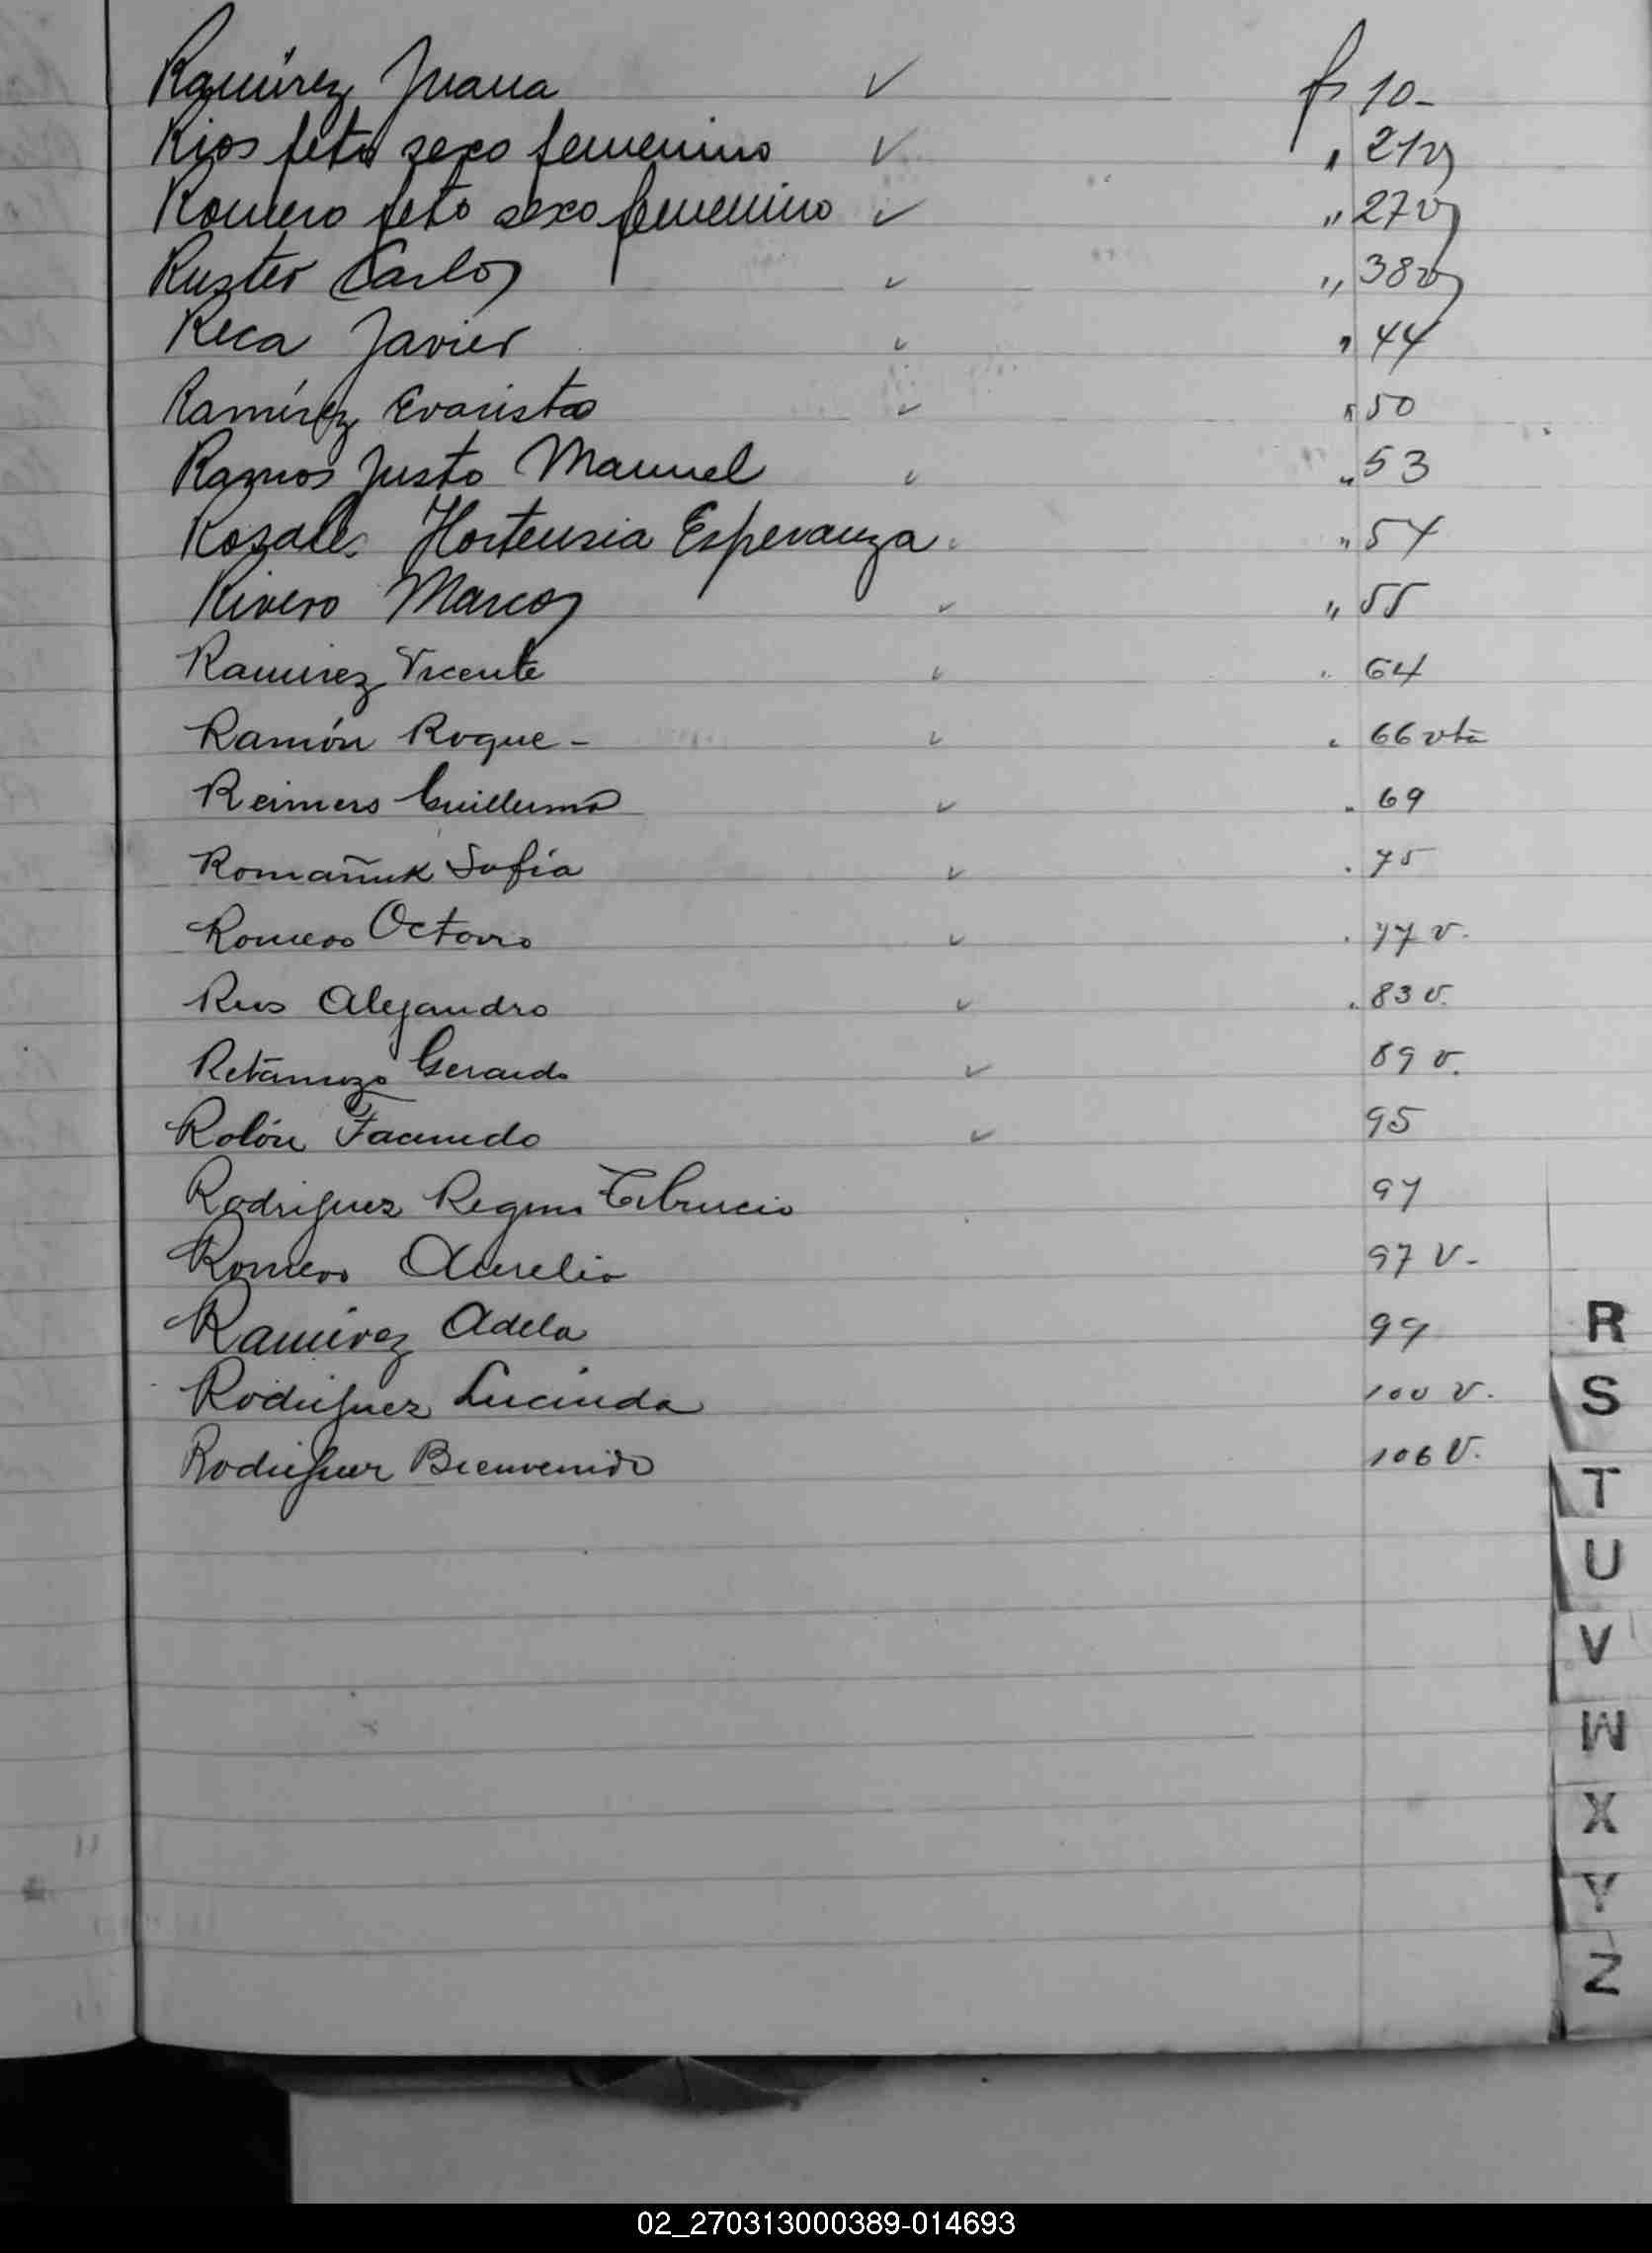 Ramírez Juana ✓ fs 10-
Rios feto sexo femenino ✓ " 21v
Romero feto sexo femenino ✓ " 27v
Ruster Carlos ✓ " 38v
Reca Javier ✓ " 44
Ramírez Evaristo ✓ " 50
Ramos Justo Manuel ✓ " 53
Rosales Hortensia Esperanza ✓ " 54
Rivero Marcos ✓ " 55
Ramirez Vicente ✓ " 64
Ramón Roque - ✓ " 66 vta
Reimers Guillermo ✓ " 69
Romañuk Sofía ✓ " 75
Romero Octavio ✓ " 77 v.
Rios Alejandro ✓ " 83 v.
Retamozo Gerardo ✓ 89 v.
Rolón Facundo ✓ 95
Rodriguez Regino Tiburcio 97
Romero Aurelio 97 v-
Ramírez Adela 99
Rodriguez Lucinda 100 v.
Rodriguez Bienvenido 106 v.
R
S
T
U
V
W
X
Y
Z
02_270313000389-014693